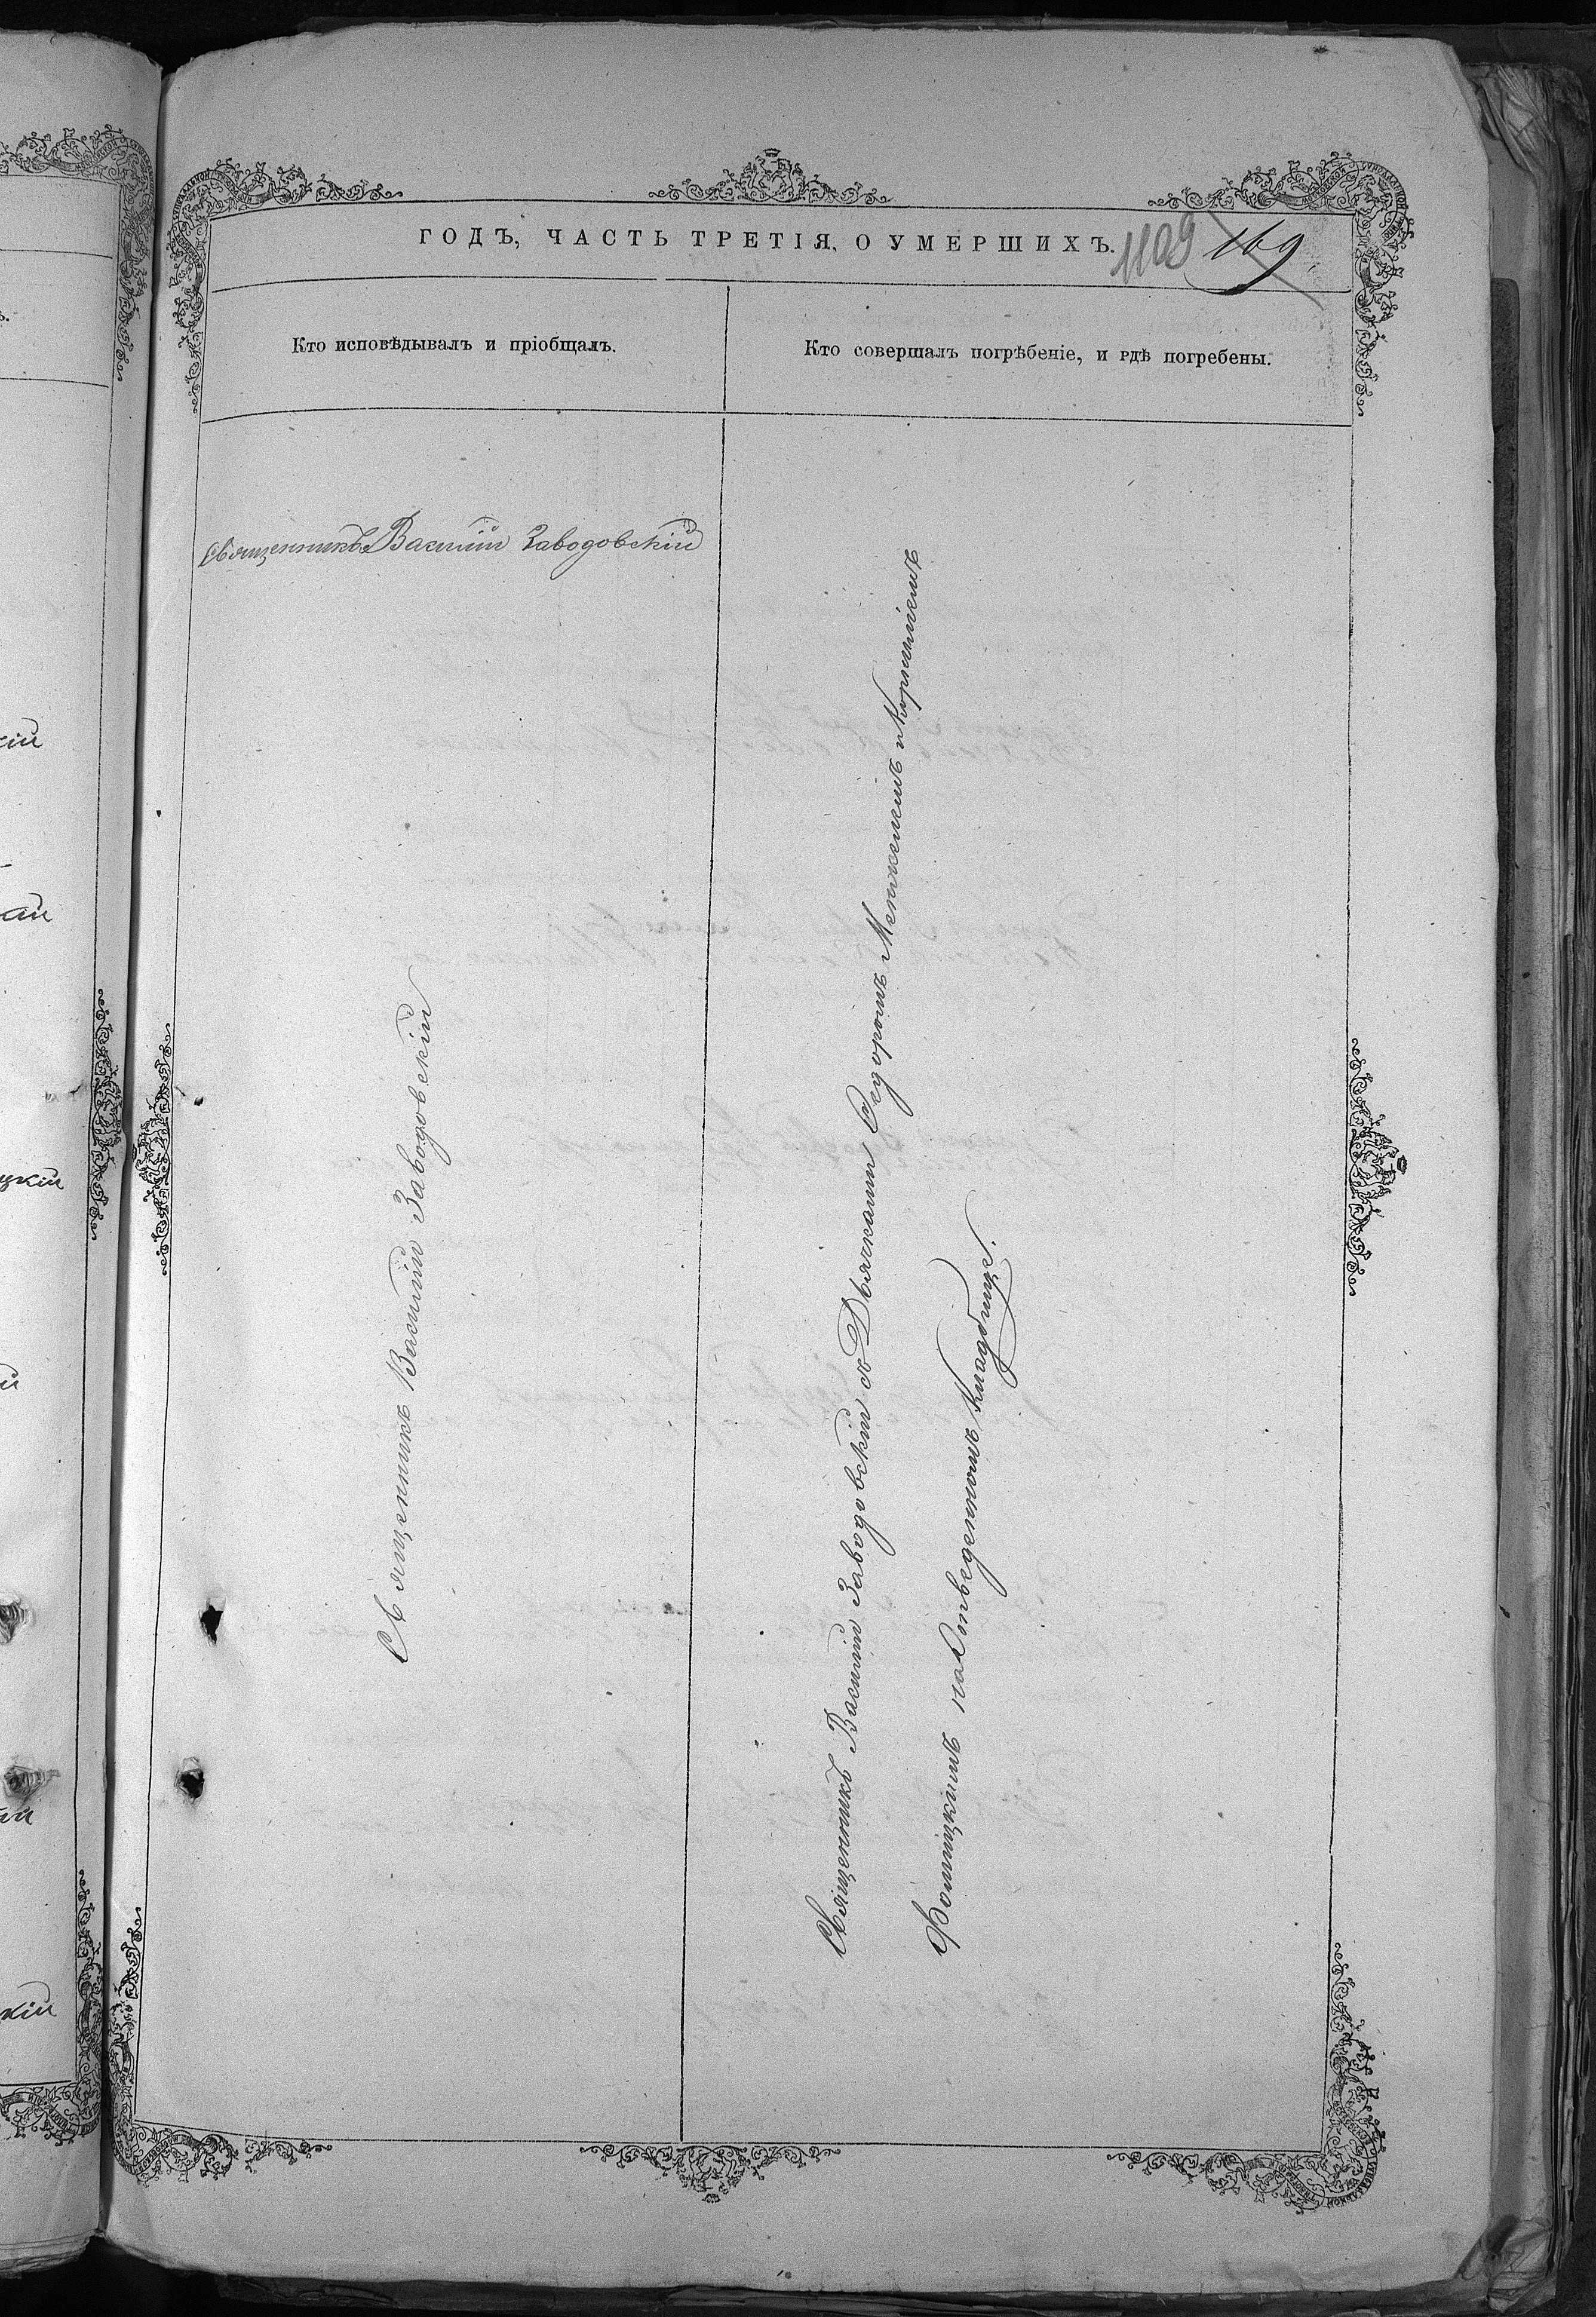 ГОДЪ, ЧАСТЬ ТРЕТІЯ, О УМЕРШИХЪ.
1109 169
Кто исповѣдывалъ и пріобщалъ.
Кто совершалъ погрѣбеніе, и гдѣ погребены.
Священникъ Василій Заводовскій
Священникъ Василій Заводовскій
Священникъ Василій Заводовскій съ Дьячками Ѳедоромъ
Фомицкимъ на Отведенномъ Кладбищѣ.
кій
цкій
кій